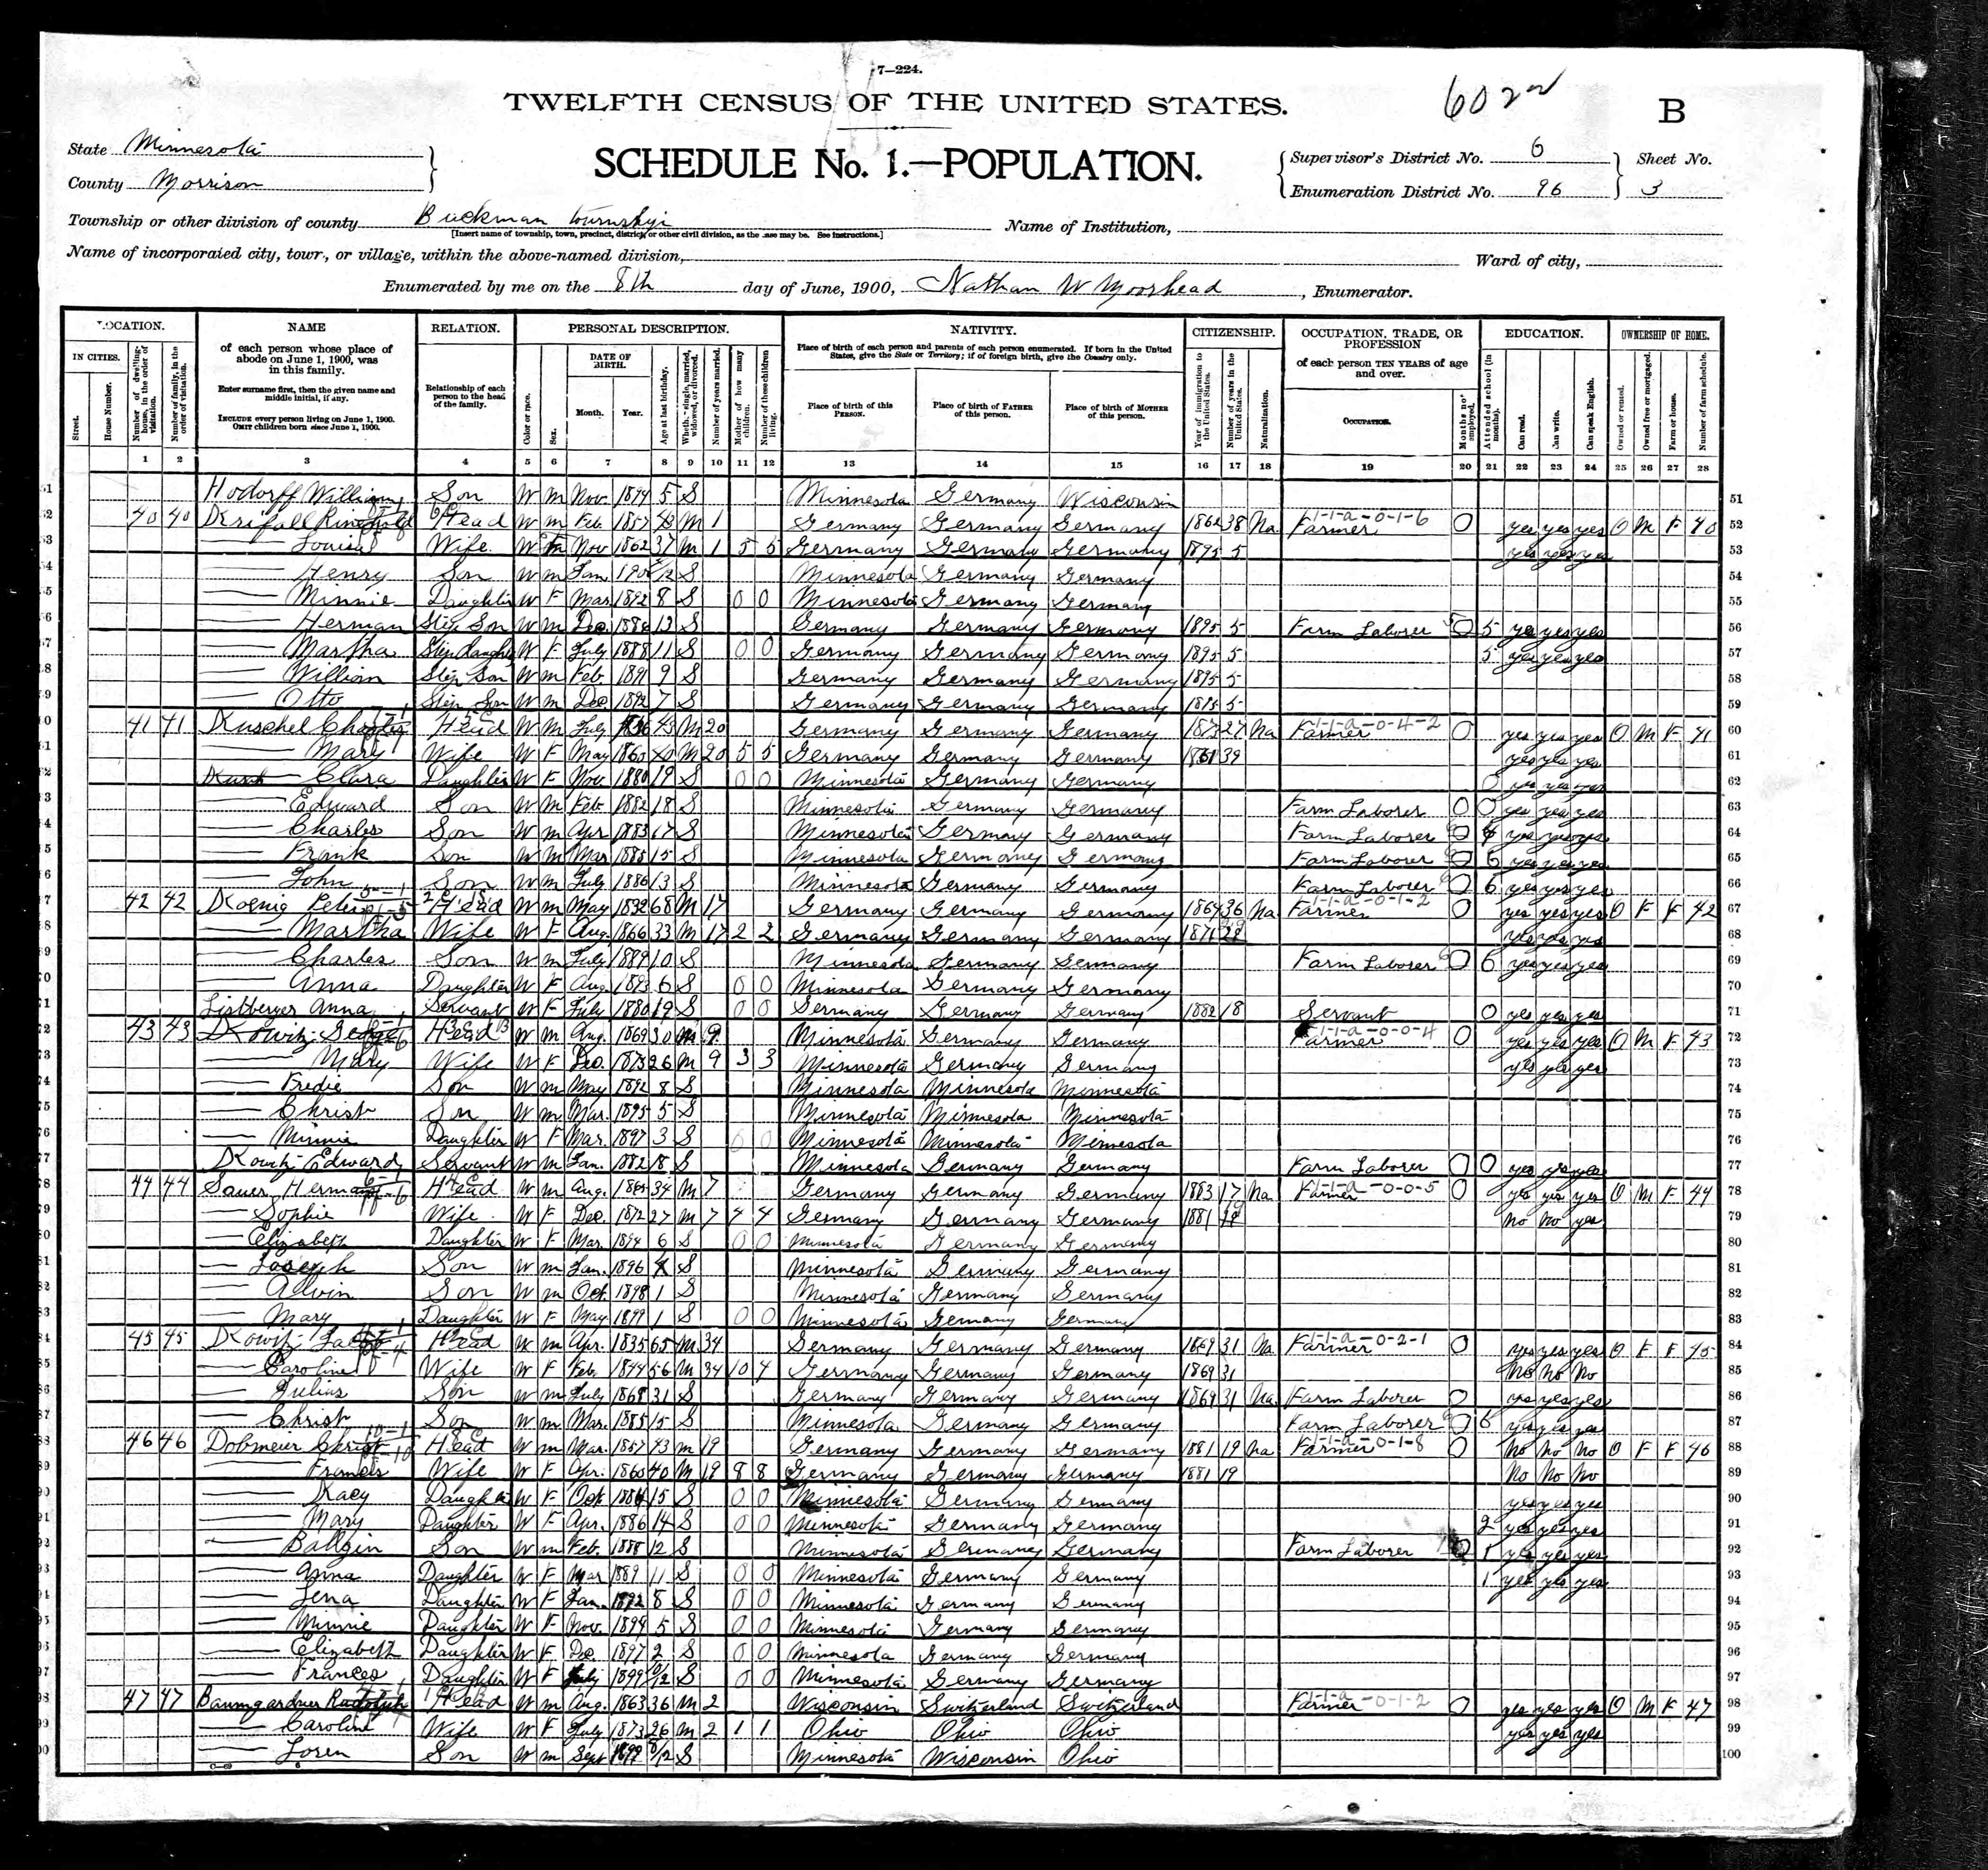 7—224.
TWELFTH CENSUS OF THE UNITED STATES.
602
B
State Minnesota
County Morrison
SCHEDULE No. 1.—POPULATION.
Supervisor's District No. 6
Enumeration District No. 96
Sheet No. 3
Township or other division of county Buckman township
[Insert name of township, town, precinct, district, or other civil division, as the case may be. See instructions.]
Name of Institution,
Name of incorporated city, town, or village, within the above-named division,
Ward of city,
Enumerated by me on the 8th day of June, 1900, Nathan W Moorhead, Enumerator.
LOCATION. NAME RELATION. PERSONAL DESCRIPTION. NATIVITY. CITIZENSHIP. OCCUPATION, TRADE, OR PROFESSION EDUCATION. OWNERSHIP OF HOME.
IN CITIES. Street. House Number. Number of dwelling-house, in the order of visitation. Number of family, in the order of visitation.
of each person whose place of abode on June 1, 1900, was in this family.
Enter surname first, then the given name and middle initial, if any.
INCLUDE every person living on June 1, 1900. OMIT children born since June 1, 1900.
Relationship of each person to the head of the family.
Color or race. Sex. DATE OF BIRTH. Month. Year. Age at last birthday. Whether single, married, widowed, or divorced. Number of years married. Mother of how many children. Number of these children living.
Place of birth of each person and parents of each person enumerated. If born in the United States, give the State or Territory; if of foreign birth, give the Country only.
Place of birth of this PERSON. Place of birth of FATHER of this person. Place of birth of MOTHER of this person.
Year of immigration to the United States. Number of years in the United States. Naturalization.
of each person TEN YEARS of age and over.
OCCUPATION. Months not employed.
Attended school (in months). Can read. Can write. Can speak English.
Owned or rented. Owned free or mortgaged. Farm or house. Number of farm schedule.
1 2 3 4 5 6 7 8 9 10 11 12 13 14 15 16 17 18 19 20 21 22 23 24 25 26 27 28
Hodorff William Son W m Nov. 1894 5 S Minnesota Germany Wisconsin 51
40 40 Head W m Feb 1857 43 M 1 Germany Germany Germany 1862 38 Na Farmer 0 yes yes yes O M F 40 52
Louisa Wife W F Nov 1862 37 M 1 5 5 Germany Germany Germany 1895 5 yes yes yes 53
Henry Son W m Jan 1900 S Minnesota Germany Germany 54
Minnie Daughter W F Mar 1892 8 S 0 0 Minnesota Germany Germany 55
Herman Step Son W m Dec. 1886 13 S Germany Germany Germany 1895 5 Farm Laborer 5 yes yes yes 56
Martha Step daughter W F July 1888 11 S 0 0 Germany Germany Germany 1895 5 5 yes yes yes 57
William Step Son W m Feb 1891 9 S Germany Germany Germany 1895 5 58
Otto Step Son W m Dec 1892 7 S Germany Germany Germany 1895 5 59
41 41 Kuschel Head W M July 43 M 20 Germany Germany Germany 1873 27 Na Farmer 0 yes yes yes O M F 41 60
Mary Wife W F May 1860 40 M 20 5 5 Germany Germany Germany 1861 39 yes yes yes 61
Clara Daughter W F Nov. 1880 19 S 0 0 Minnesota Germany Germany 0 yes yes yes 62
Edward Son W m Feb 1882 18 S Minnesota Germany Germany Farm Laborer 0 0 yes yes yes 63
Charles Son W m Apr 1883 17 S Minnesota Germany Germany Farm Laborer yes yes yes 64
Frank Son W m Mar 1885 15 S Minnesota Germany Germany Farm Laborer 6 yes yes yes 65
John Son W m July 1886 13 S Minnesota Germany Germany Farm Laborer 6 yes yes yes 66
42 42 Koenig Peter Head W m May 1832 68 M 17 Germany Germany Germany 1864 36 Na Farmer 0 yes yes yes O F F 42 67
Martha Wife W F Aug. 1866 33 M 17 2 2 Germany Germany Germany 1871 yes yes yes 68
Charles Son W m July 1889 10 S Minnesota Germany Germany Farm Laborer 6 yes yes yes 69
Anna Daughter W F Aug 1893 6 S 0 0 Minnesota Germany Germany 70
Listberger Anna Servant W F July 1880 19 S 0 0 Germany Germany Germany 1882 18 Servant 0 yes yes yes 71
43 43 Kowitz George Head W m Aug. 1869 30 M 9 Minnesota Germany Germany Farmer 0 yes yes yes O M F 43 72
Mary Wife W F Dec. 1873 26 M 9 3 3 Minnesota Germany Germany yes yes yes 73
Fredie Son W m May 1892 8 S Minnesota Minnesota Minnesota 74
Christ Son W m Mar. 1895 5 S Minnesota Minnesota Minnesota 75
Minnie Daughter W F Mar. 1897 3 S 0 0 Minnesota Minnesota Minnesota 76
Kowitz Edward Servant W m Jan. 1882 18 S Minnesota Germany Germany Farm Laborer 0 0 yes yes yes 77
44 44 Sauer Herman Head W m Aug. 1865 34 M 7 Germany Germany Germany 1883 17 Na Farmer 0 yes yes yes O M F 44 78
Sophie Wife W F Dec. 1872 27 M 7 4 4 Germany Germany Germany 1881 No No yes 79
Elizabeth Daughter W F Mar. 1894 6 S 0 0 Minnesota Germany Germany 80
Joseph Son W m Jan. 1896 4 S Minnesota Germany Germany 81
Alvin Son W m Oct. 1898 1 S Minnesota Germany Germany 82
Mary Daughter W F May 1899 1 S 0 0 Minnesota Germany Germany 83
45 45 Kowitz Head W m Apr. 1835 65 M 34 Germany Germany Germany 1869 31 Na Farmer 0 yes yes yes O F F 45 84
Caroline Wife W F Feb. 1844 56 M 34 10 4 Germany Germany Germany 1869 31 No No No 85
Julius Son W m July 1868 31 S Germany Germany Germany 1869 31 Na. Farm Laborer 0 yes yes yes 86
Christ Son W m Mar. 1885 15 S Minnesota Germany Germany Farm Laborer 6 yes yes yes 87
46 46 Dobmeier Christ Head W m Mar. 1857 43 M 19 Germany Germany Germany 1881 19 Na Farmer 0 No No No O F F 46 88
Francis Wife W F Apr. 1860 40 M 19 8 8 Germany Germany Germany 1881 19 No No No 89
Kaey Daughter W F Oct 1884 15 S 0 0 Minnesota Germany Germany yes yes yes 90
Mary Daughter W F Apr. 1886 14 S 0 0 Minnesota Germany Germany 2 yes yes yes 91
Son W m Feb. 1888 12 S Minnesota Germany Germany Farm Laborer 1 yes yes yes 92
Anna Daughter W F Mar 1889 11 S 0 0 Minnesota Germany Germany 1 yes yes yes 93
Lena Daughter W F Jan. 1892 8 S 0 0 Minnesota Germany Germany 94
Minnie Daughter W F Nov. 1894 5 S 0 0 Minnesota Germany Germany 95
Elizabeth Daughter W F Dec 1897 2 S 0 0 Minnesota Germany Germany 96
Frances Daughter W F July 1899 S 0 0 Minnesota Germany Germany 97
47 47 Baumgardner Rudolph Head W m Aug. 1863 36 M 2 Wisconsin Switzerland Switzerland Farmer 0 yes yes yes O M F 47 98
Caroline Wife W F July 1873 26 M 2 1 1 Ohio Ohio Ohio yes yes yes 99
Loren Son W m Sept 1899 8/12 S Minnesota Wisconsin Ohio 100